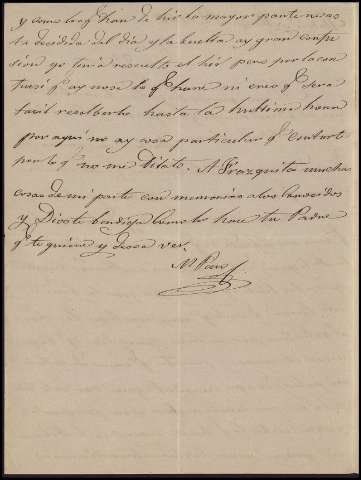 y como los q.e han de hir la mayor parte no es
ta decidida del dia y la buelta ay gran confu
sion yo tenia resuelto el hir pero por la con
fusi q.e ay no se lo q.e hare ni creo q.e sera
facil resolberlo hasta la hultima hora
por aqui no ay cosa particular q.e
por lo q.e no me dilato. A Frazquita muchas
cosas de mi parte con memorias a los conocidos
y Dios te bendiga como lo hace tu Padre
q.e te quiere y desea ver.
M